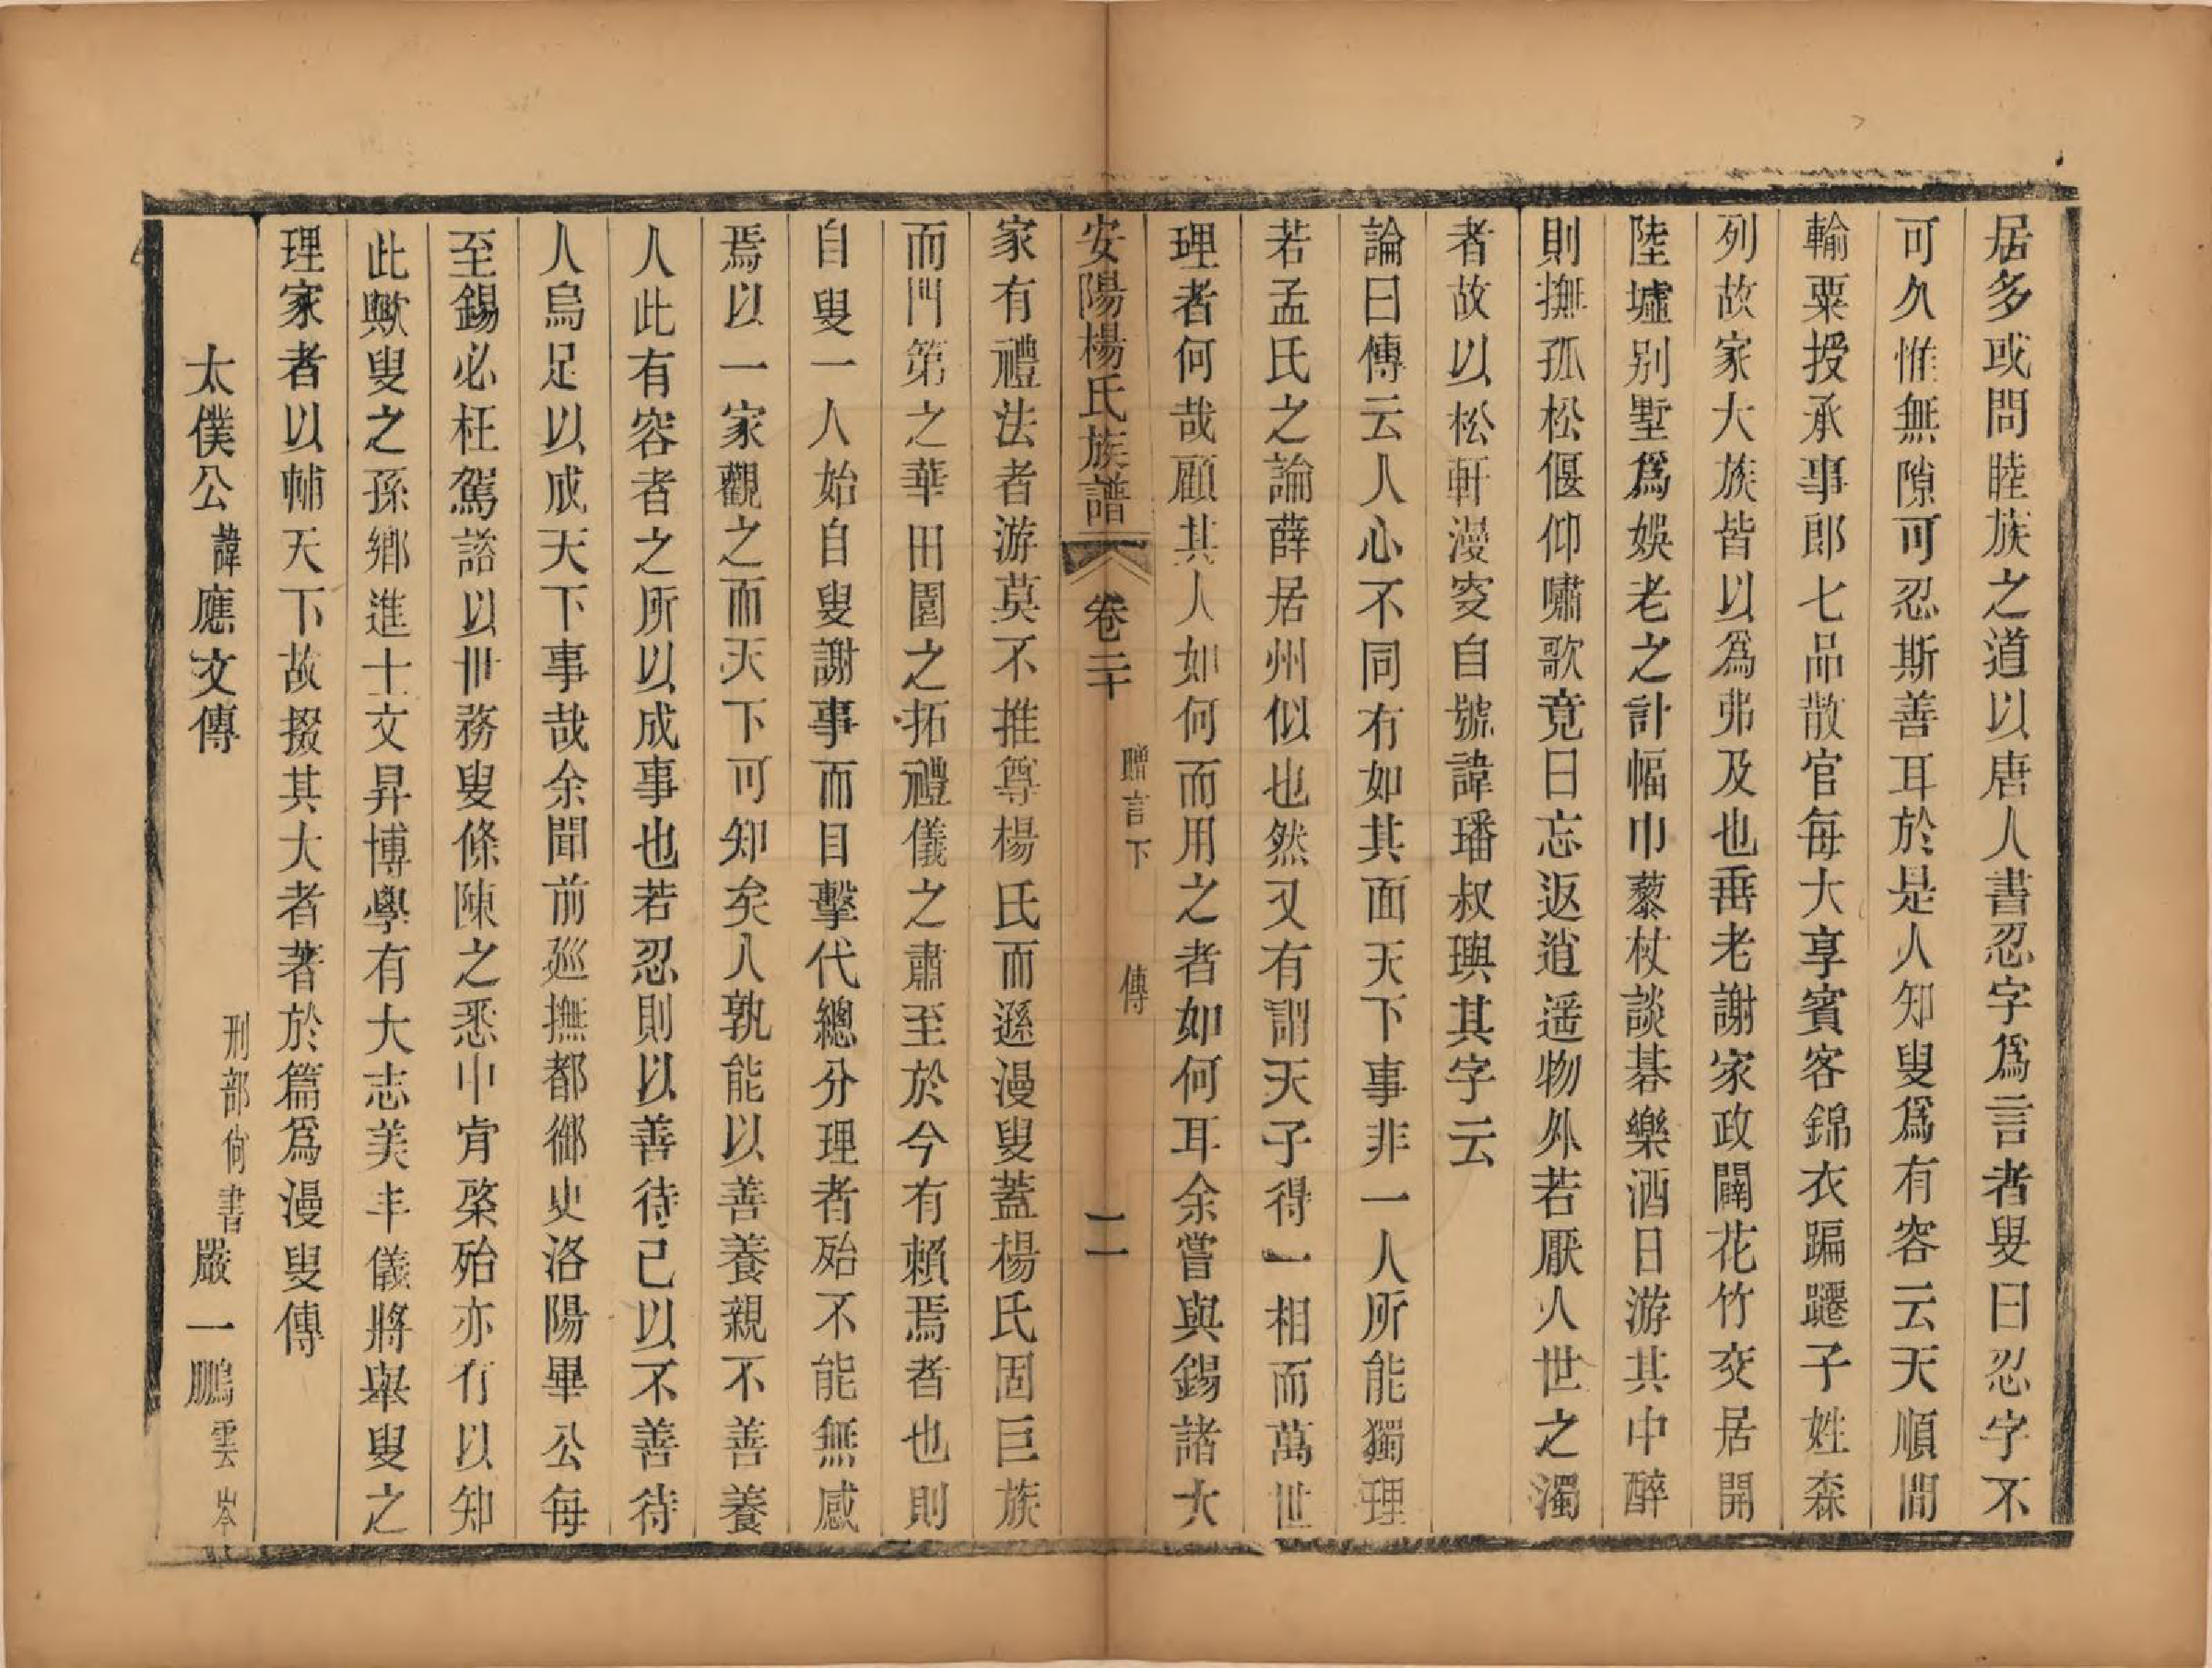 居多或問睦族之道以唐人書忍字爲言者叟曰忍字不
可久惟無隙可忍斯善耳於是人知叟爲有容云天順間
輸粟授承事郎七品散官每大享賓客錦衣蹁躚子姓森
列故家大族皆以爲弗及也垂老謝家政闢花竹交居開
陸墟别墅爲娛老之計幅巾藜杖談棊樂酒日游其中醉
則撫孤松偃仰嘯歌竟日忘返逍遥物外若厭人世之濁
者故以松軒漫叜自號諱璠叔璵其字云
論曰傳云人心不同有如其面天下事非一人所能獨理
若孟氏之論薛居州似也然又有謂天子得一相而萬世
理者何哉顧其人如何而用之者如何耳余嘗與錫諸大
安陽楊氏族譜 卷二十 贈言下 傳 二
家有禮法者游莫不推尊楊氏而遜漫叟蓋楊氏固巨族
而門第之華田園之拓禮儀之肅至於今有賴焉者也則
自叟一人始自叟謝事而目擊代總分理者殆不能無感
焉以一家觀之而天下可知矣人孰能以善養親不善養
人此有容者之所以成事也若忍則以善待己以不善待
人烏足以成天下事哉余聞前廵撫都御史洛陽畢公每
至錫必枉駕諮以世務叟條陳之悉中肯棨殆亦有以知
此歟叟之孫鄉進士文昇博學有大志美丰儀將舉叟之
理家者以輔天下故掇其大者著於篇爲漫叟傳
太僕公諱應文傳 刑部尙書嚴一鵬雲岑